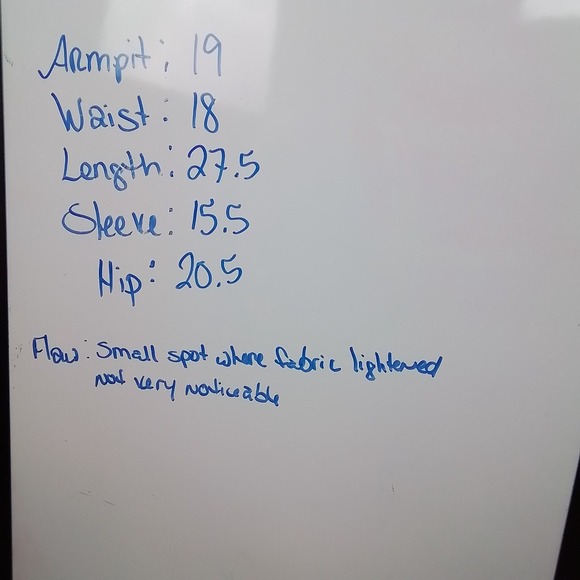 Armpit: 19
Waist: 18
Length: 27.5
Sleeve: 15.5
Hip: 20.5
Flaw: Small spot where fabric lightened
not very noticeable